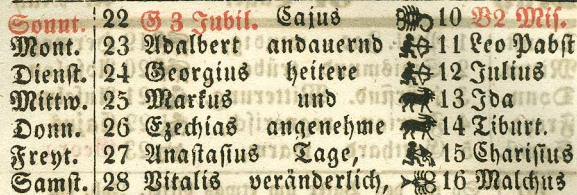 Sonnt. 22 G 3 Jubil. Cajus 10 B2 Mis.
Mont. 23 Adalbert andauernd 11 Leo Pabst
Dienst. 24 Georgius heitere 12 Julius
Mittw. 25 Markus und 13 Ida
Donn. 26 Ezechias angenehme 14 Tiburt.
Freyt. 27 Anastasius Tage, 15 Charisius
Samst. 28 Vitalis veränderlich, 16 Malchus